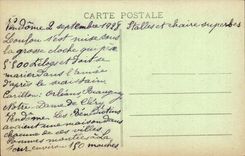 CARTE POSTALE
Vendôme 2 septembre 1928
Stalles et chaire superbes
Loulou s'est mise sous
la grosse cloche qui pèse
5500 kilogs et doit se
marier dans l'année
d'après le vrai
Carillon: Orléans, Beaugency
Notre-Dame de Cléry
Vendôme. Les Bénédictins
avaient une maison dans
chacune de ces villes
sommes montés à la
Tour environ 150 marches